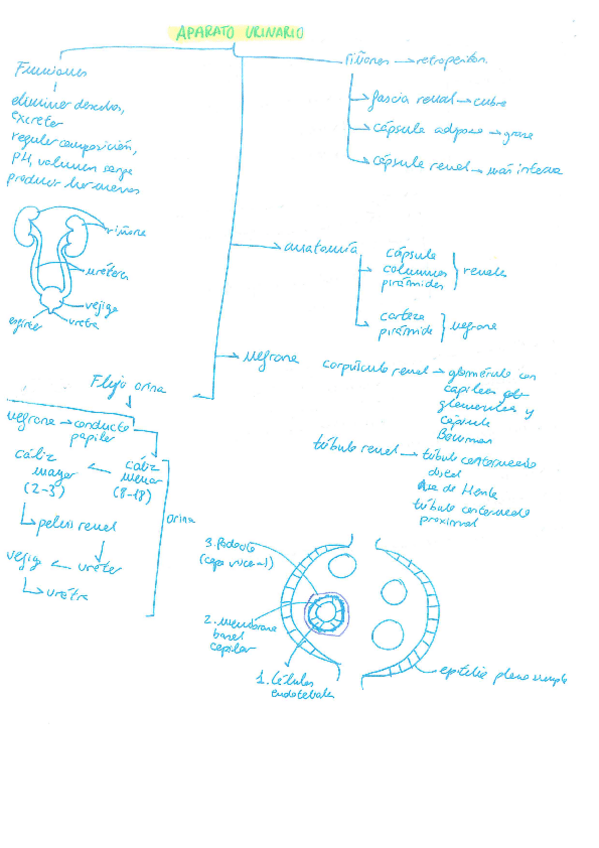 APARATO URINARIO
Funciones
eliminar desechos,
excretar
regular composición,
PH, volumen sangre
producir hormonas
riñones
uréteres
vejiga
uretra
esfínter
Riñones → retroperiton.
fascia renal → cubre
cápsula adiposa → grasa
cápsula renal → más interna
anatomía
cápsula
columnas
pirámides
renales
corteza
pirámide
nefrona
nefrona
corpúsculo renal → glomérulo con
capilares
glomerulares y
cápsula
Bowman
túbulo renal → túbulo contorneado
distal
Asa de Henle
túbulo contorneado
proximal
Flujo orina
nefrona → conducto
papilar
cáliz
menor
(8-18)
cáliz
mayor
(2-3)
pelvis renal
uréter
vejiga
uretra
orina
3. Podocito
(capa visceral)
2. membrana
basal
capilar
1. Células
endoteliales
epitelio plano simple